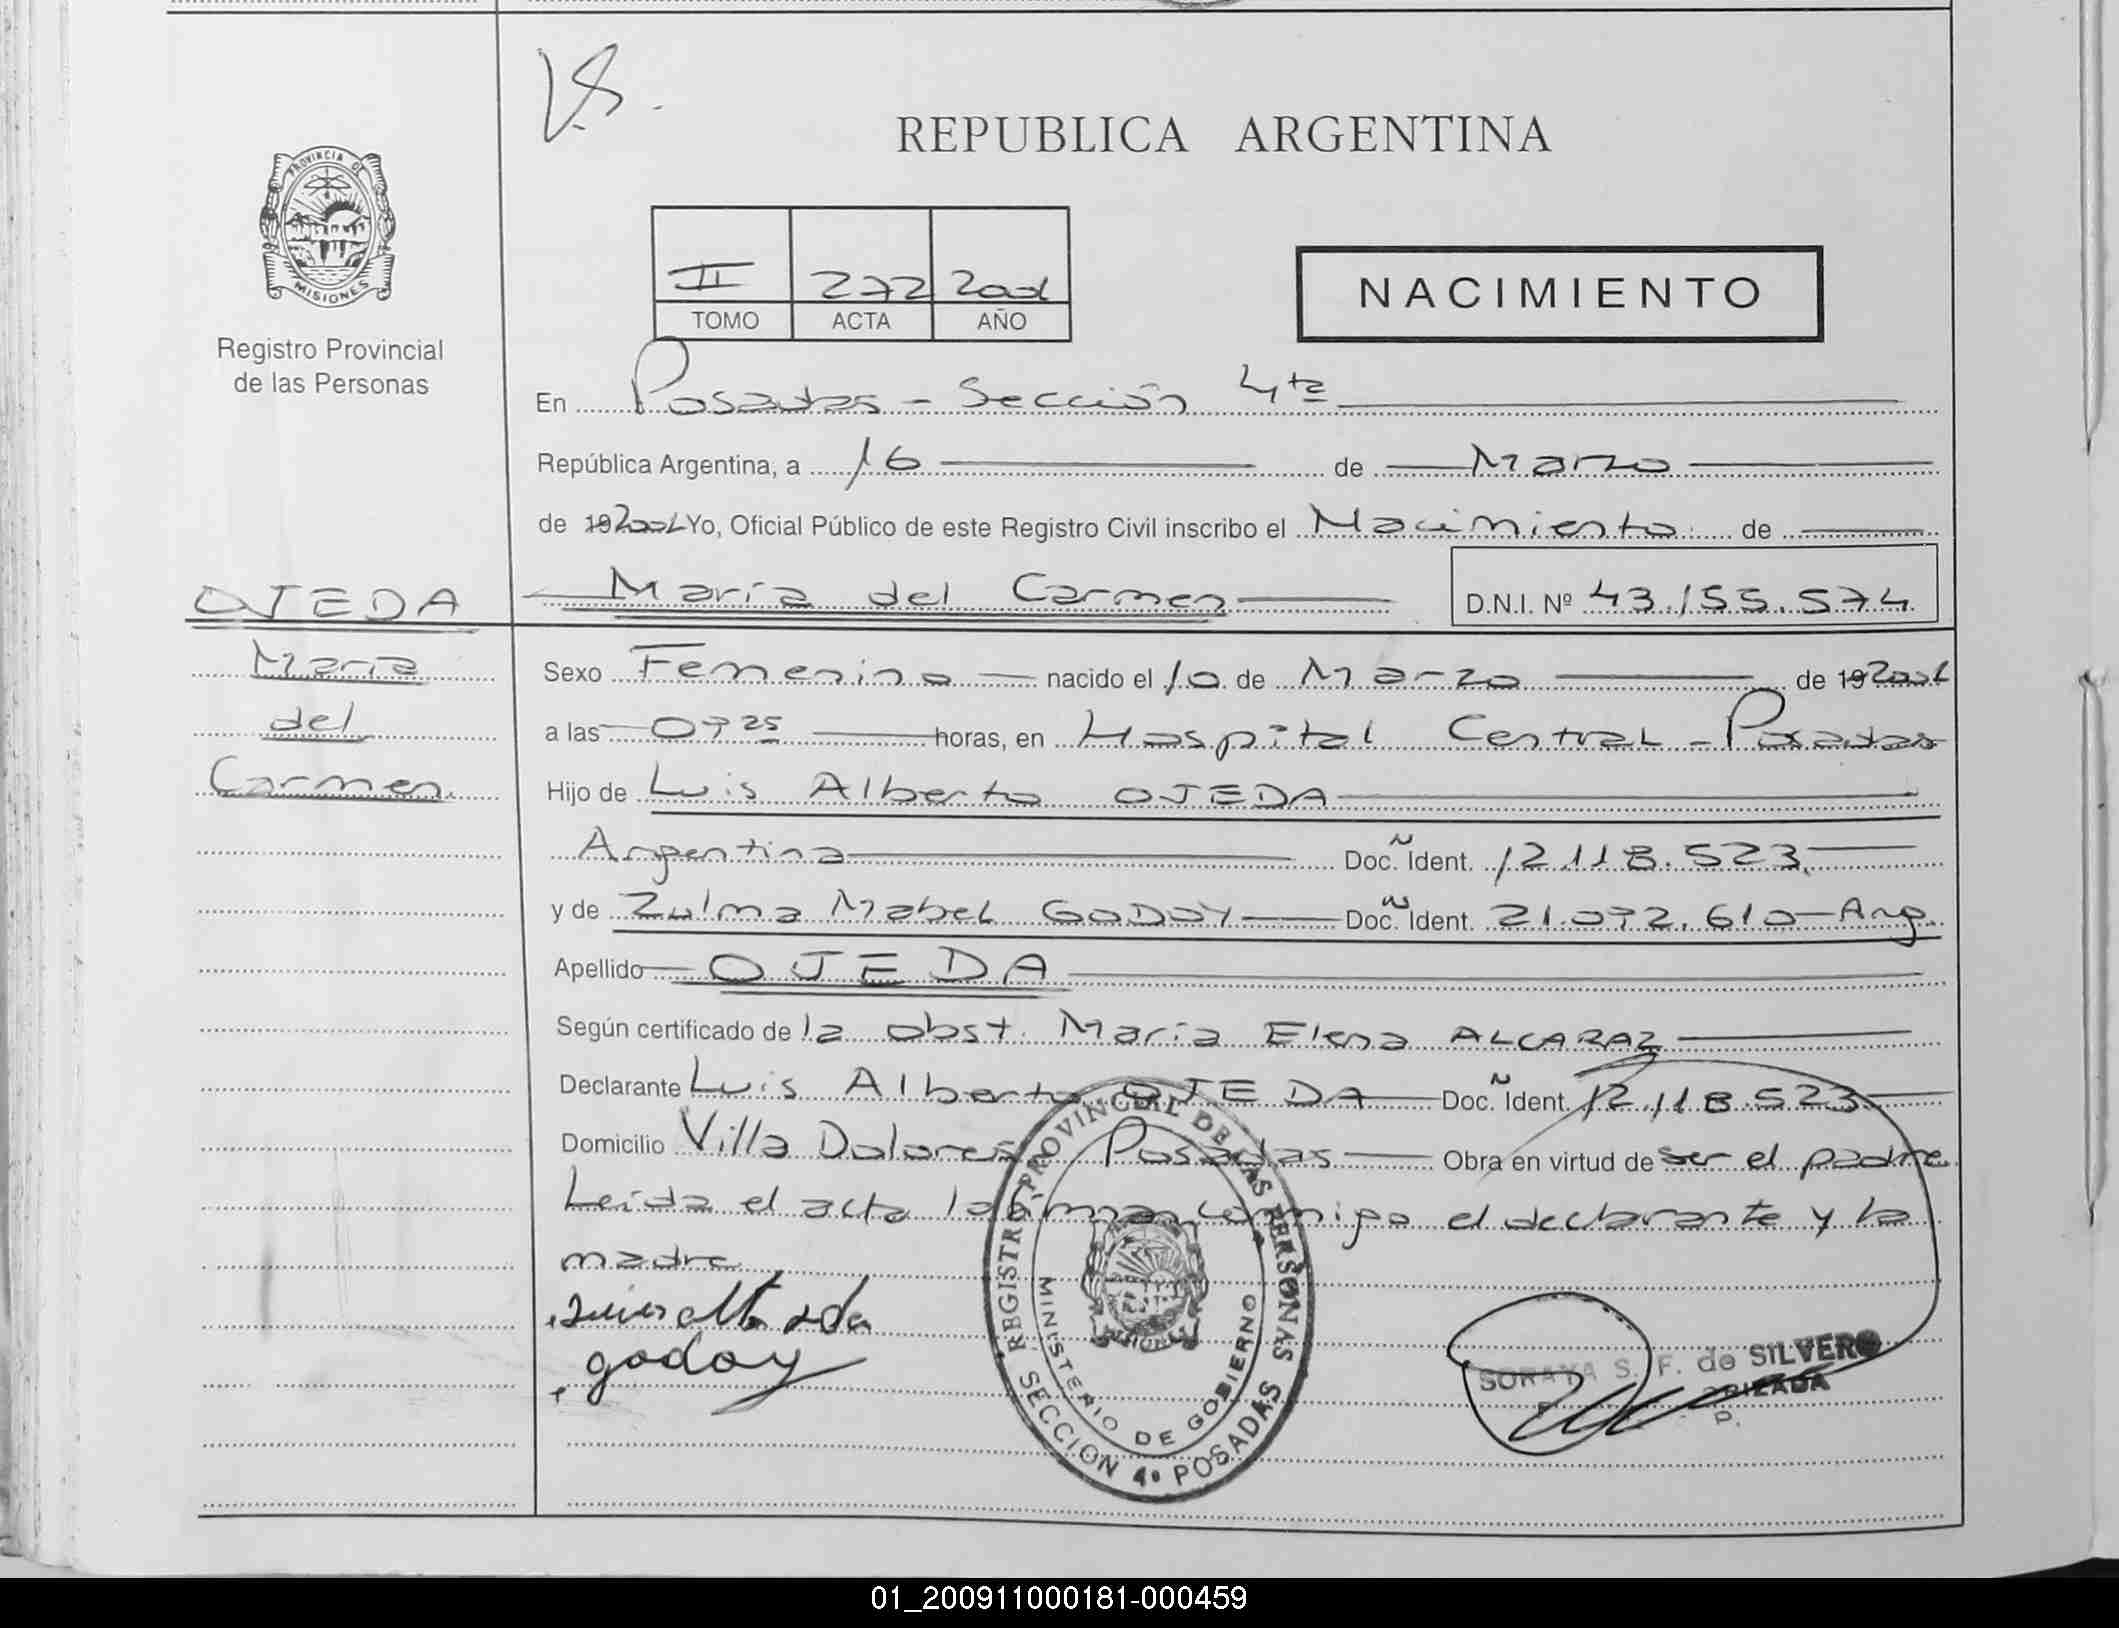 REPUBLICA ARGENTINA
PROVINCIA DE
MISIONES
Registro Provincial
de las Personas
II 272 2001
TOMO ACTA AÑO
NACIMIENTO
En Posadas - Sección 4ta
República Argentina, a 16 de Marzo
de 19 2001 Yo, Oficial Público de este Registro Civil inscribo el Nacimiento de
OJEDA María del Carmen D.N.I. Nº 43.155.574
María
del
Carmen
Sexo Femenino nacido el 10 de Marzo de 19 2001
a las 0725 horas, en Hospital Central - Posadas
Hijo de Luis Alberto OJEDA
Argentina Doc. Ident. 12.118.523
y de Zulma Mabel GODOY Doc. Ident. 21.072.610 - Arg.
Apellido OJEDA
Según certificado de la obst. María Elena ALCARAZ
Declarante Luis Alberto OJEDA Doc. Ident. 12.118.523
Domicilio Villa Dolores Posadas Obra en virtud de ser el padre
Leída el acta la firman conmigo el declarante y la
madre
godoy
REGISTRO PROVINCIAL DE LAS PERSONAS
MINISTERIO DE GOBIERNO
SECCION 4ª POSADAS
SORAYA S. F. de SILVERO
01_200911000181-000459